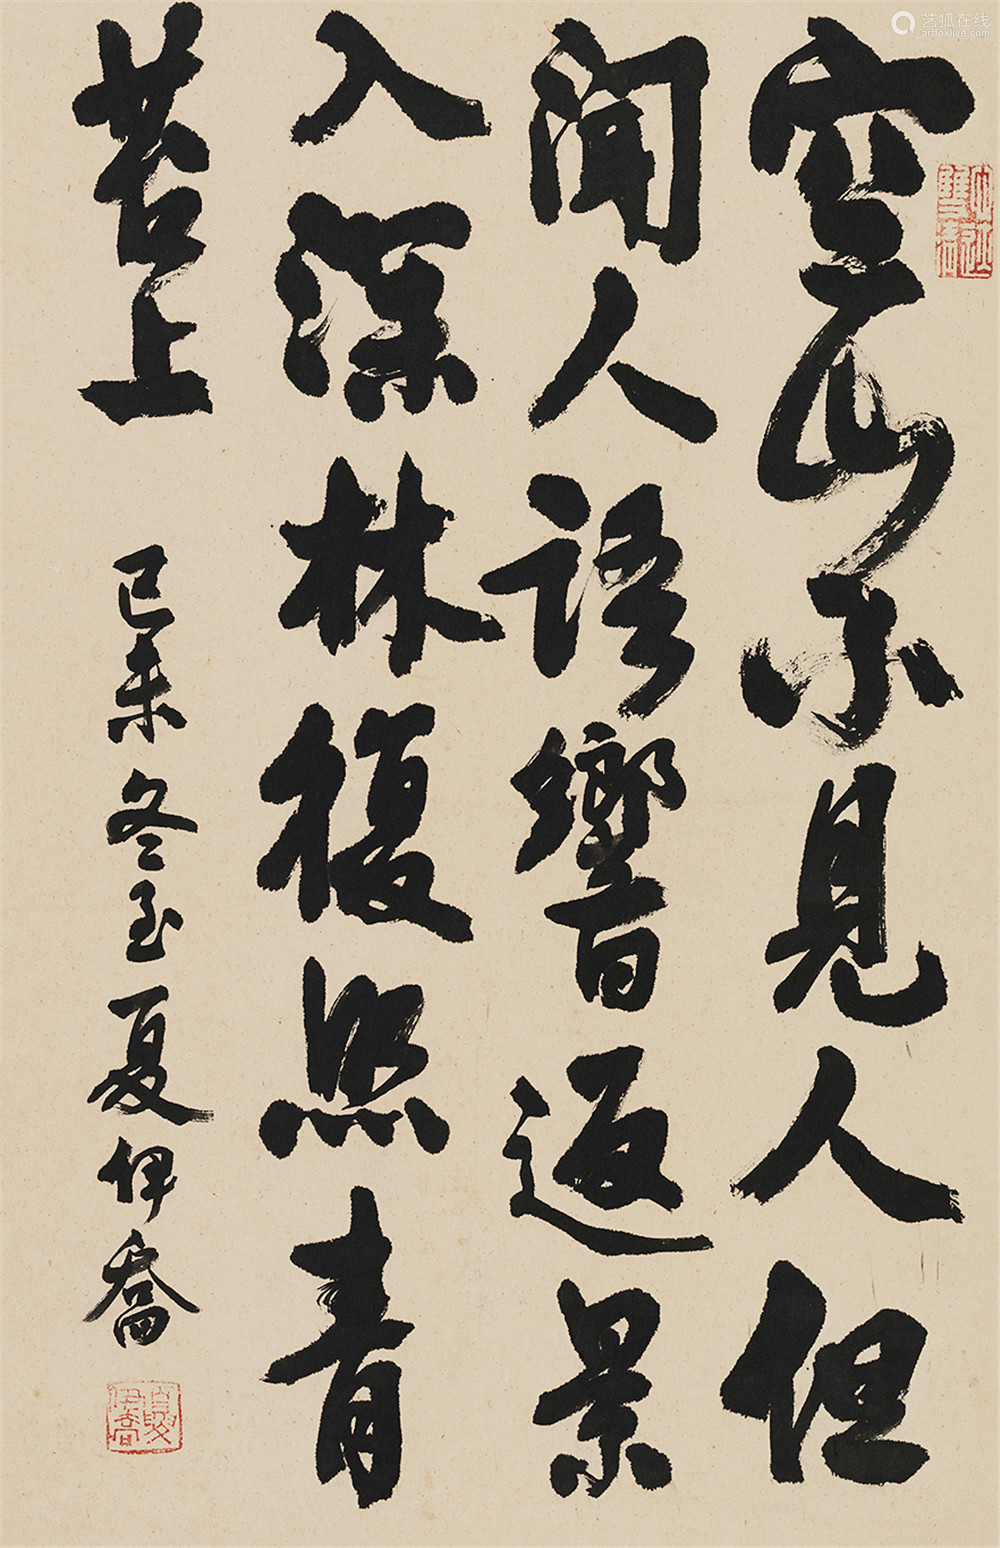 空山不見人但
聞人語響返景
入深林復照青
苔上
己未冬至夏伊喬
夏伊喬
艺狐在线
artfoxlive.com